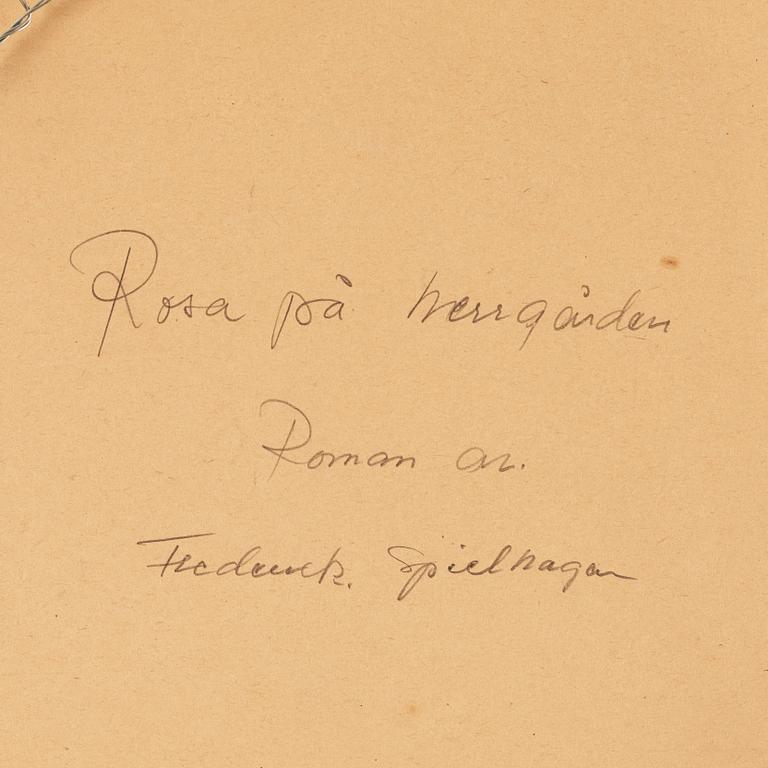 Rosa på herrgården
Roman av.
Frederick. Spielhagen